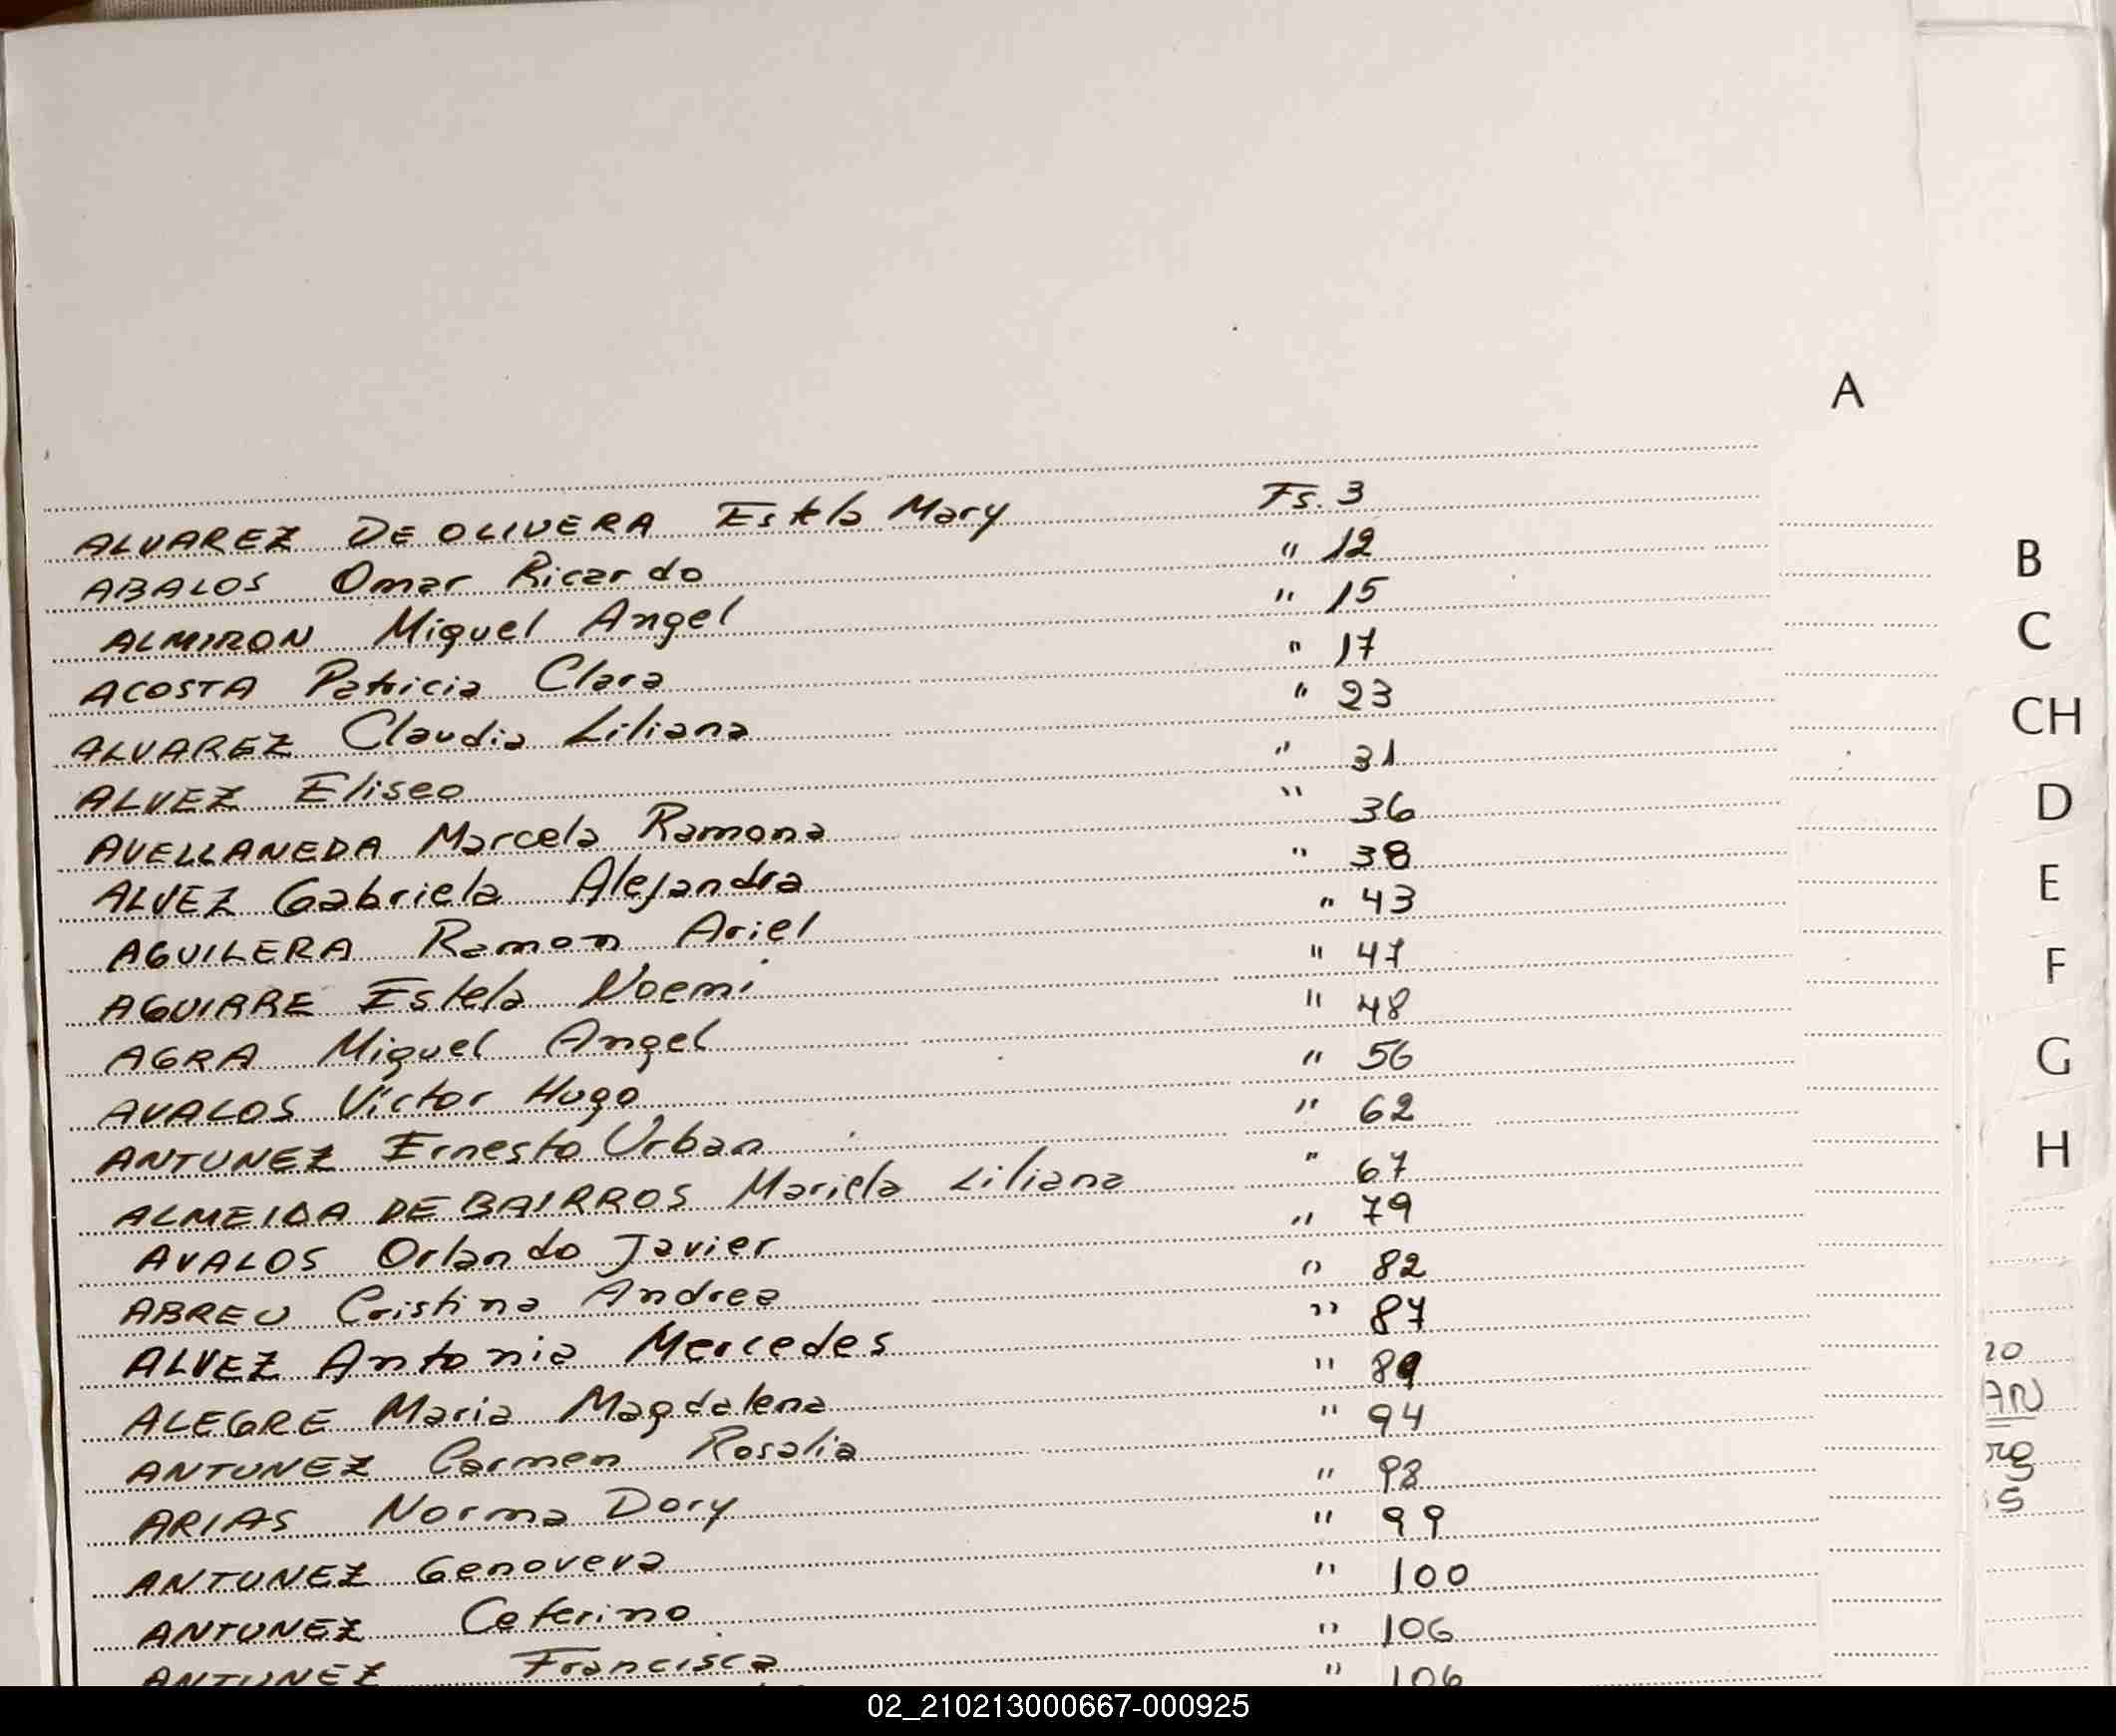 A
ALVAREZ DE OLIVERA Estela Mary Fs. 3
ABALOS Omar Ricardo " 12
ALMIRON Miguel Angel " 15
ACOSTA Patricia Clara " 17
ALVAREZ Claudia Liliana " 23
ALVEZ Eliseo " 31
AVELLANEDA Marcela Ramona " 36
ALVEZ Gabriela Alejandra " 38
AGUILERA Ramon Ariel " 43
AGUIRRE Estela Noemi " 47
AGRA Miguel Angel " 48
AVALOS Victor Hugo " 56
ANTUNEZ Ernesto Urban " 62
ALMEIDA DE BAIRROS Mariela Liliana " 67
AVALOS Orlando Javier " 79
ABREU Cristina Andrea " 82
ALVEZ Antonia Mercedes " 87
ALEGRE Maria Magdalena " 89
ANTUNEZ Carmen Rosalia " 94
ARIAS Norma Dory " 98
ANTUNEZ Genoveva " 99
ANTUNEZ Ceferino " 100
ANTUNEZ Francisca " 106
" 106
B
C
CH
D
E
F
G
H
02_210213000667-000925